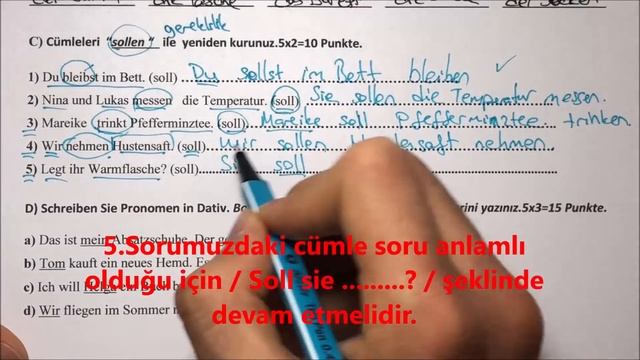 gereklilik
C) Cümleleri "sollen" ile yeniden kurunuz.5x2=10 Punkte.
1) Du bleibst im Bett. (soll) Du sollst im Bett bleiben ✓
2) Nina und Lukas messen die Temperatur. (soll) Sie sollen die Temperatur messen.
3) Mareike trinkt Pfefferminztee. (soll). Mareike soll Pfefferminztee trinken
4) Wir nehmen Hustensaft. (soll) Wir sollen nehmen.
5) Legt ihr Warmflasche? (soll) soll
D) Schreiben Sie Pronomen in Dativ. yazınız.5x3=15 Punkte.
a) Das ist mein Absatzschuhe. Der
b) Tom kauft ein neues Hemd. Es
c) Ich will Helga ein Buch
d) Wir fliegen im Sommer
5.Sorumuzdaki cümle soru anlamlı
olduğu için / Soll sie .........? / şeklinde
devam etmelidir.